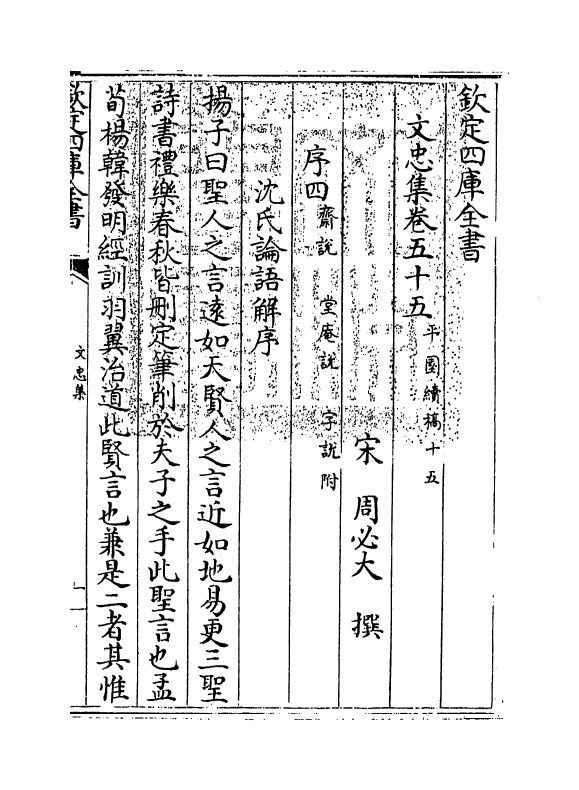 欽定四庫全書
文忠集卷五十五 平園續稿十五
宋 周必大 撰
序四 齋說 堂庵說 字說附
沈氏論語解序
揚子曰聖人之言逺如天賢人之言近如地易更三聖
詩書禮樂春秋皆刪定筆削於夫子之手此聖言也孟
荀楊韓發明經訓羽翼治道此賢言也兼是二者其惟
欽定四庫全書
文忠集
一